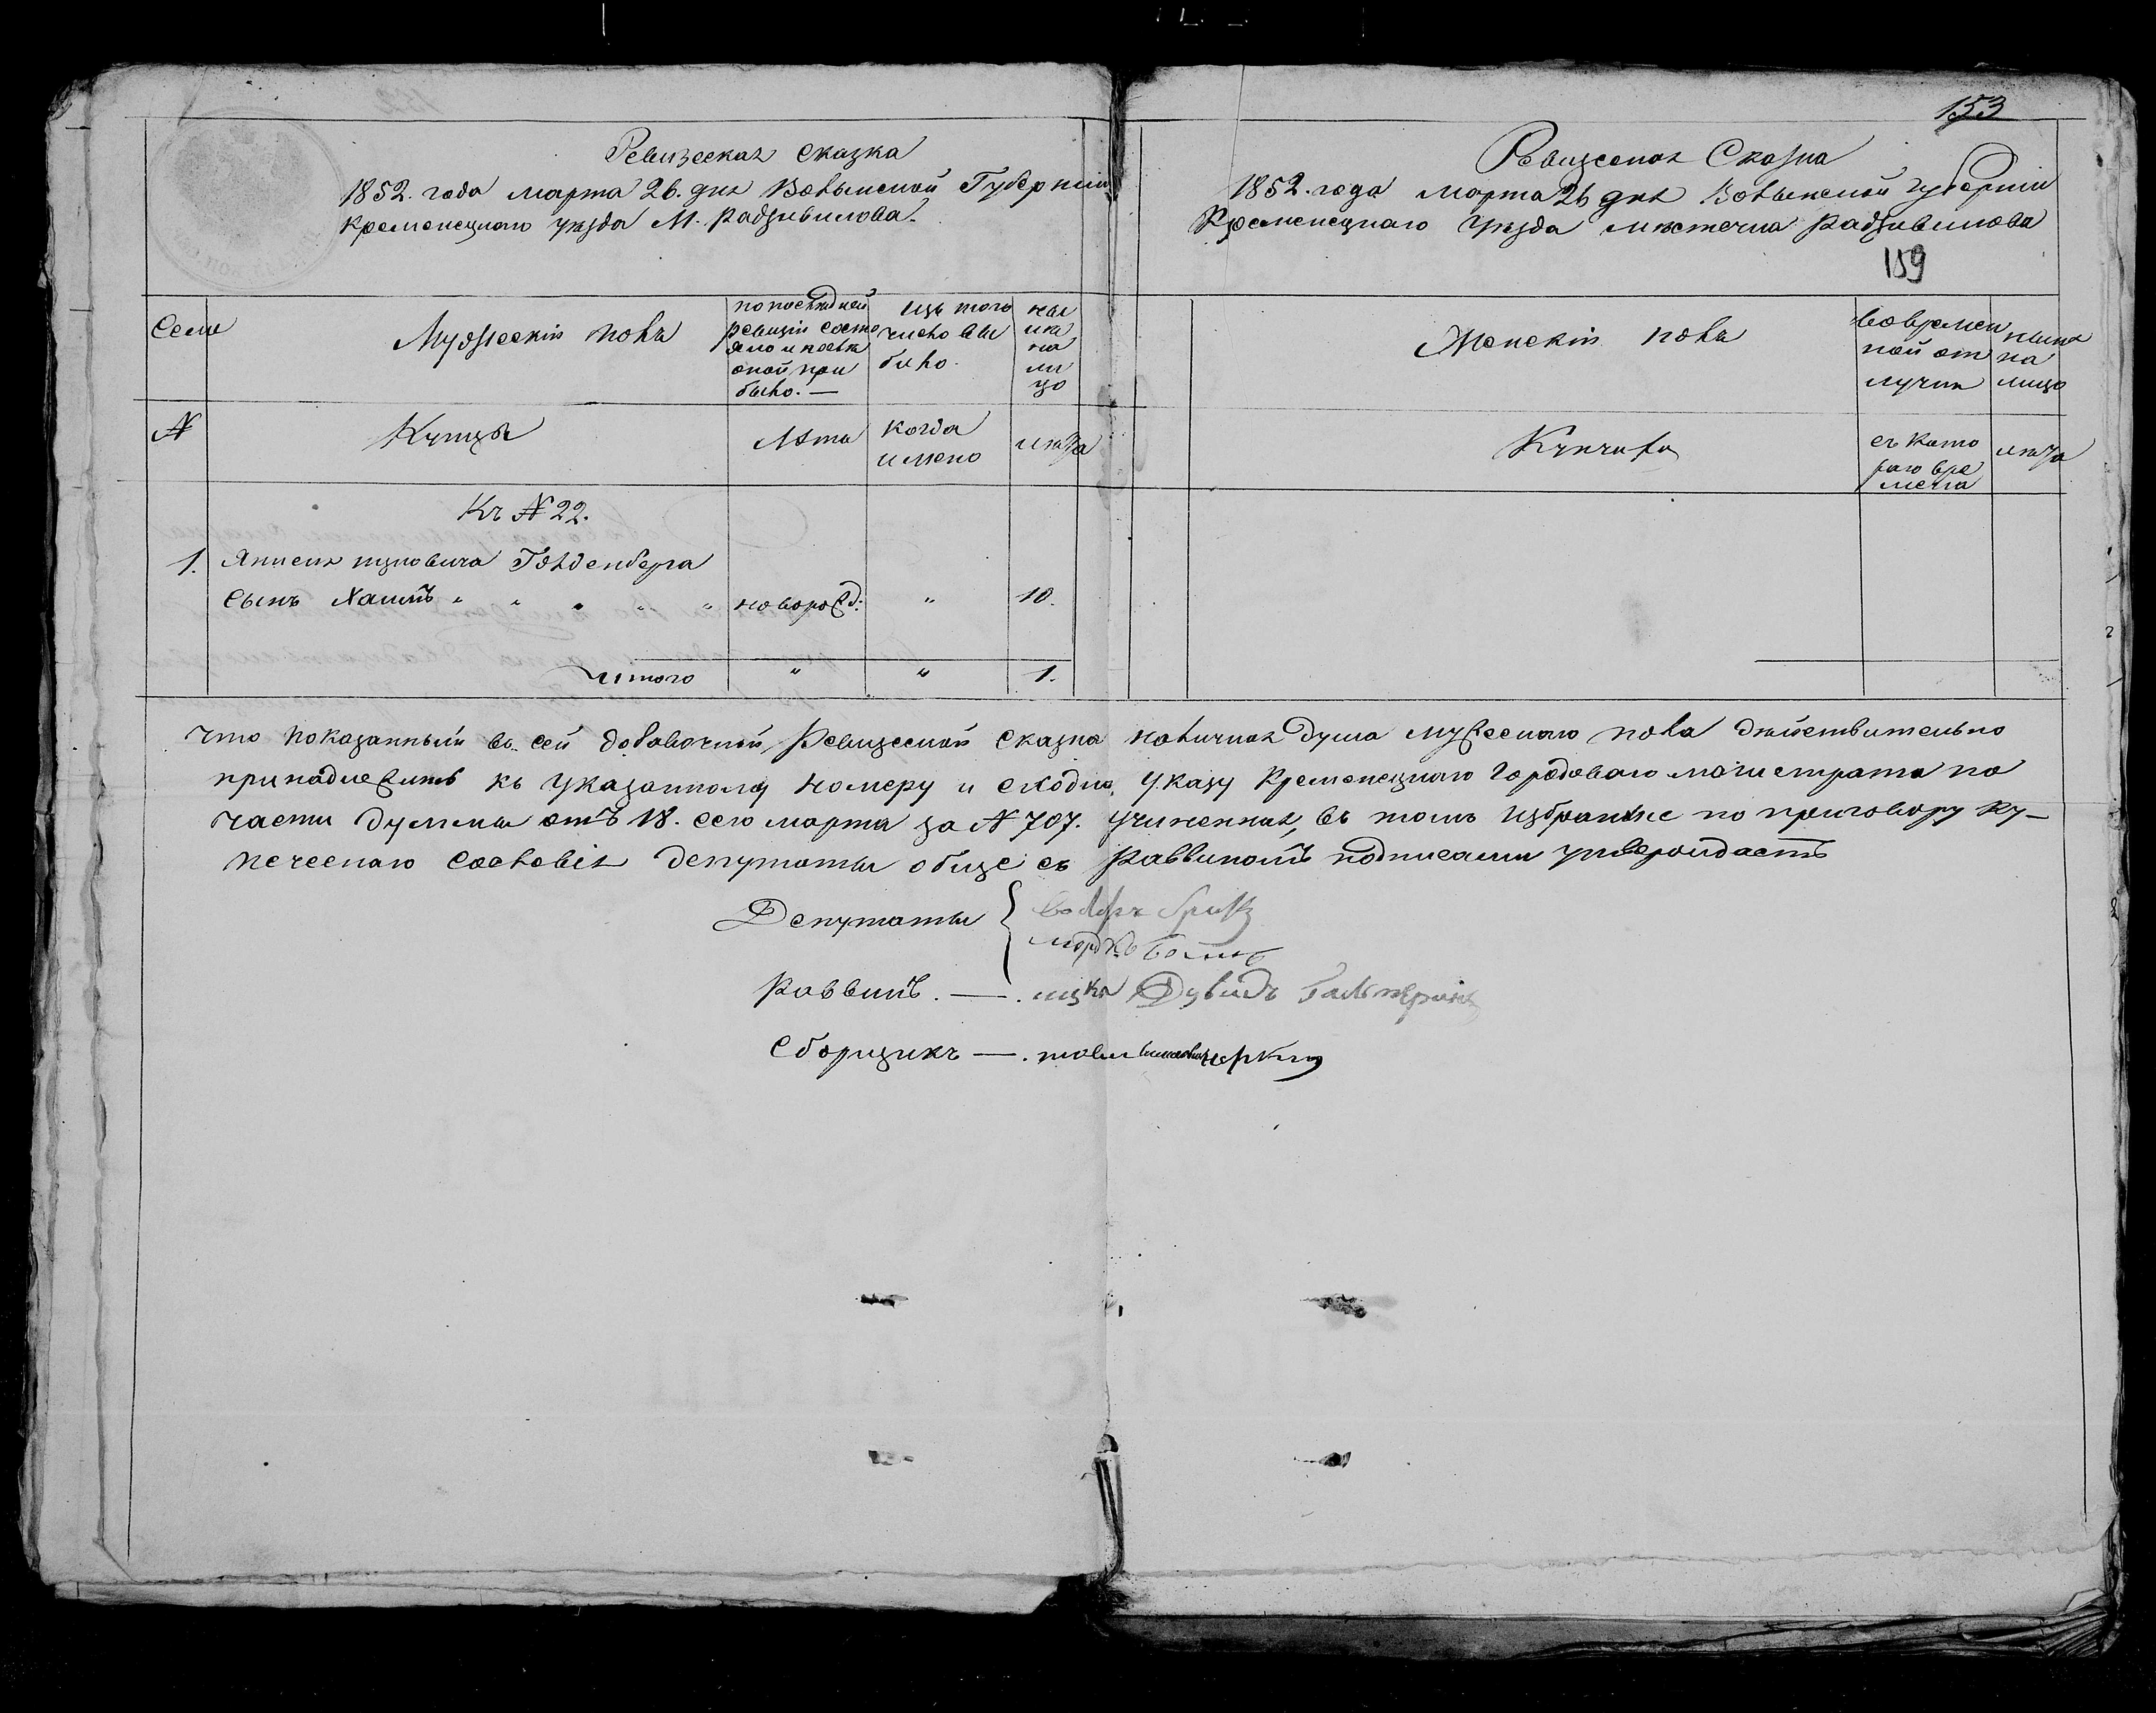 153
Ревизская сказка
1852. года марта 26. дня Волынской Губерніи
Кременецкаго уезда М. Радзивилова.
Ревизская Сказка
1852. года марта 26 дня Волынской Губерніи
Кременецкаго Уезда местечка Радзивилова
159
Семьи
Мужескій полъ
по последней ревизіи состояло и после оной прибыло. —
изъ того числа выбыло.
ныне на лицо
Женскій полъ
во временной отлучки
ныне на лицо
№
Купцы
Лета
когда именно
лета
Купчихи
съ котораго времена
лета
Къ № 22.
1. Гольденберга
Сынъ Хаимъ " " " " " новорожд: " 10.
итого " " 1.
что показанный въ сей добавочной, Ревизской сказке наличная душа мужескаго пола действительно
принадлежитъ къ указанному номеру и сходно указу Кременецкаго Городоваго магистрата по
части думы отъ 18. сего марта за № 707. учиненная, въ томъ избранные по приговору ку-
печескаго сословія депутаты обще съ Раввиномъ подписами утверждаетъ
Депутаты
Раввинъ. — Ицка Дувидъ Гальперинъ
Сборщикъ —